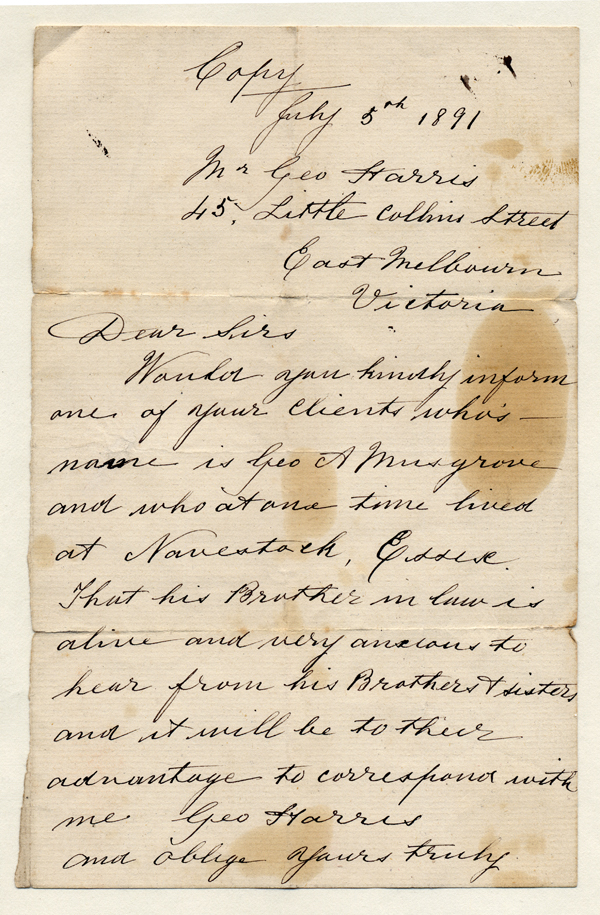 Copy
July 5th 1891
Mr Geo Harris
45, Little Collins Street
East Melbourn
Victoria
Dear Sirs
Would you kindly inform
one of your Clients who's —
name is Geo A Musgrove
and who at one time lived
at Navestock, Essex.
That his Brother in law is
alive and very anxious to
hear from his Brothers & sisters
and it will be to their
advantage to correspond with
me Geo Harris
and oblige yours truly